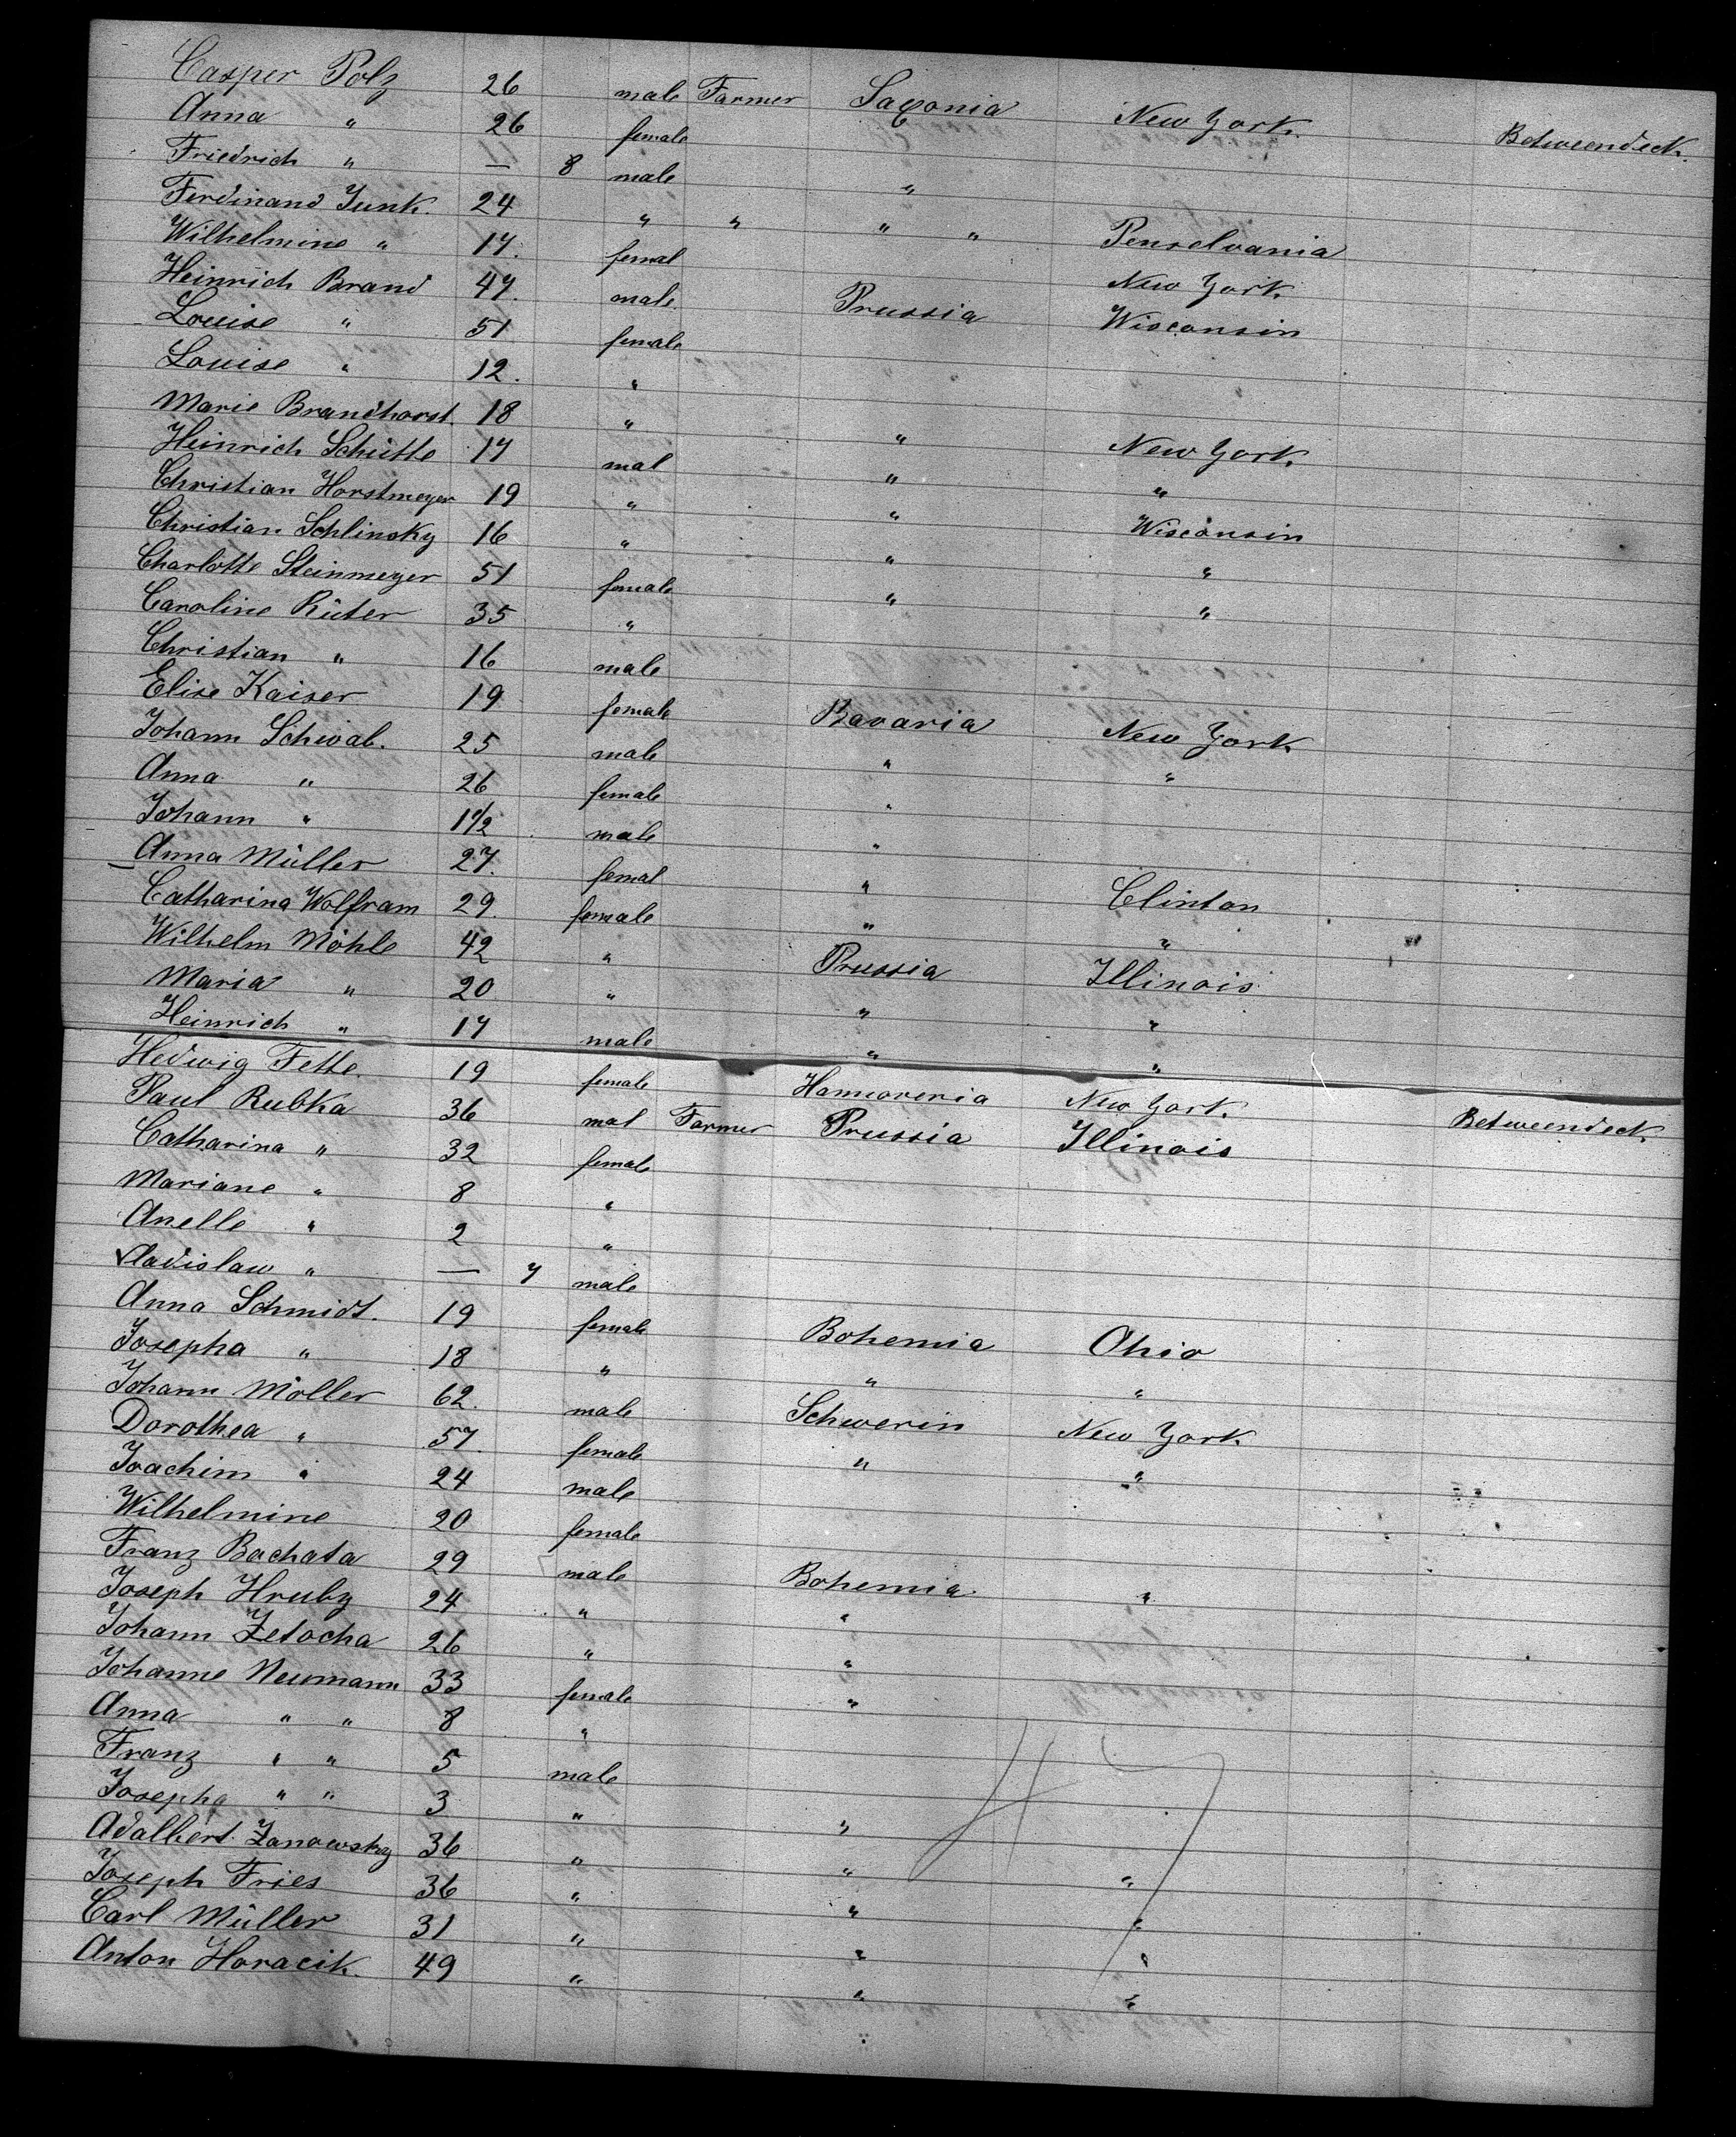 Casper Polz 26 male Farmer Saxonia New York Betweendeck.
Anna " 26 female
Friedrich " — 8 male "
Ferdinand Junk. 24 " " " " Penselvania
Wilhelmine " 17. femal New York
Heinrich Brand 47. male Prussia Wisconsin
Louise " 51 female
Louise " 12. " " " " "
Marie Brandhorst. 18 " " New York
Heinrich Schütte 17 mal " "
Christian Horstmeyer 19 " " Wisconsin
Christian Schlinsky 16 " " "
Charlotte Steinmeyer 51 female " "
Caroline Rüter 35 "
Christian " 16 male
Elise Kaiser 19 female Bavaria New York
Johann Schwab. 25 male " "
Anna " 26 female "
Johann " 1 1/2 male "
Anna Müller 27. femal " Clinton
Catharina Wolfram 29. female " "
Wilhelm Möhle 42 " Prussia Illinois
Maria " 20 " " "
Heinrich " 17 male " "
Hedwig Fette. 19 female Hannoveria New York
Paul Rubka 36 mal Farmer Prussia Illinois Betweendeck
Catharina " 32 female
Mariane " 8 "
Anelle " 2 "
Vladislaw " — 7 male
Anna Schmidt. 19 female Bohemia Ohio
Josepha " 18 " " "
Johann Möller 62. male Schwerin New York
Dorothea " 57. female " "
Joachim " 24 male
Wilhelmine 20 female
Franz Bachata 29 male Bohemia "
Joseph Hruby 24 " "
Johann Zetocha 26 " "
Johanne Neumann 33 female "
Anna " " 8 "
Franz " " 5 male
Josepha " " 3 " "
Adalbert Zanowsky 36 " " "
Joseph Fries 36 " " "
Carl Müller 31 " " "
Anton Horacik. 49 " " "
47